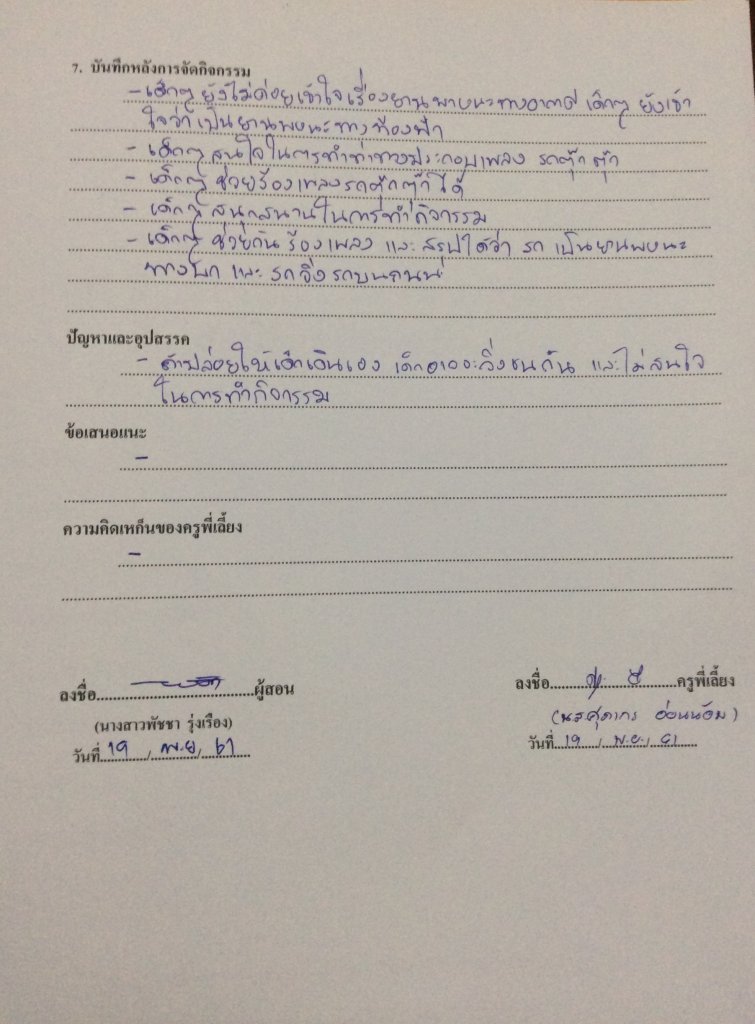 7. บันทึกหลังการจัดกิจกรรม
- เด็กๆ ยังไม่ค่อยเข้าใจเรื่องยานพาหนะทางอากาศ เด็กๆ ยังเข้า
ใจว่าเป็นยานพหนะทางท้องฟ้า
- เด็กๆ สนใจในการทำท่าทางประกอบเพลง รถตุ๊กตุ๊ก
- เด็กๆ ช่วยร้องเพลงรถตุ๊กตุ๊กได้
- เด็กๆ สนุกสนานในการทำกิจกรรม
- เด็กๆ ช่วยกันร้องเพลง และ สรุปได้ว่า รถ เป็นยานพหนะ
ทางบก และ รถวิ่งรถบนถนน
ปัญหาและอุปสรรค
- ถ้าปล่อยให้เด็กเดินเอง เด็กอาจจะวิ่งชนกัน และไม่สนใจ
ในการทำกิจกรรม
ข้อเสนอแนะ
-
ความคิดเหก็นของครูพี่เลี้ยง
-
ลงชื่อ..............................ผู้สอน
ลงชื่อ..............................ครูพี่เลี้ยง
(นางสาวพัชชา รุ่งเรือง)
(นส อ่อนน้อม)
วันที่ 19 / พ.ย. / 61
วันที่ 19 / พ.ย. / 61